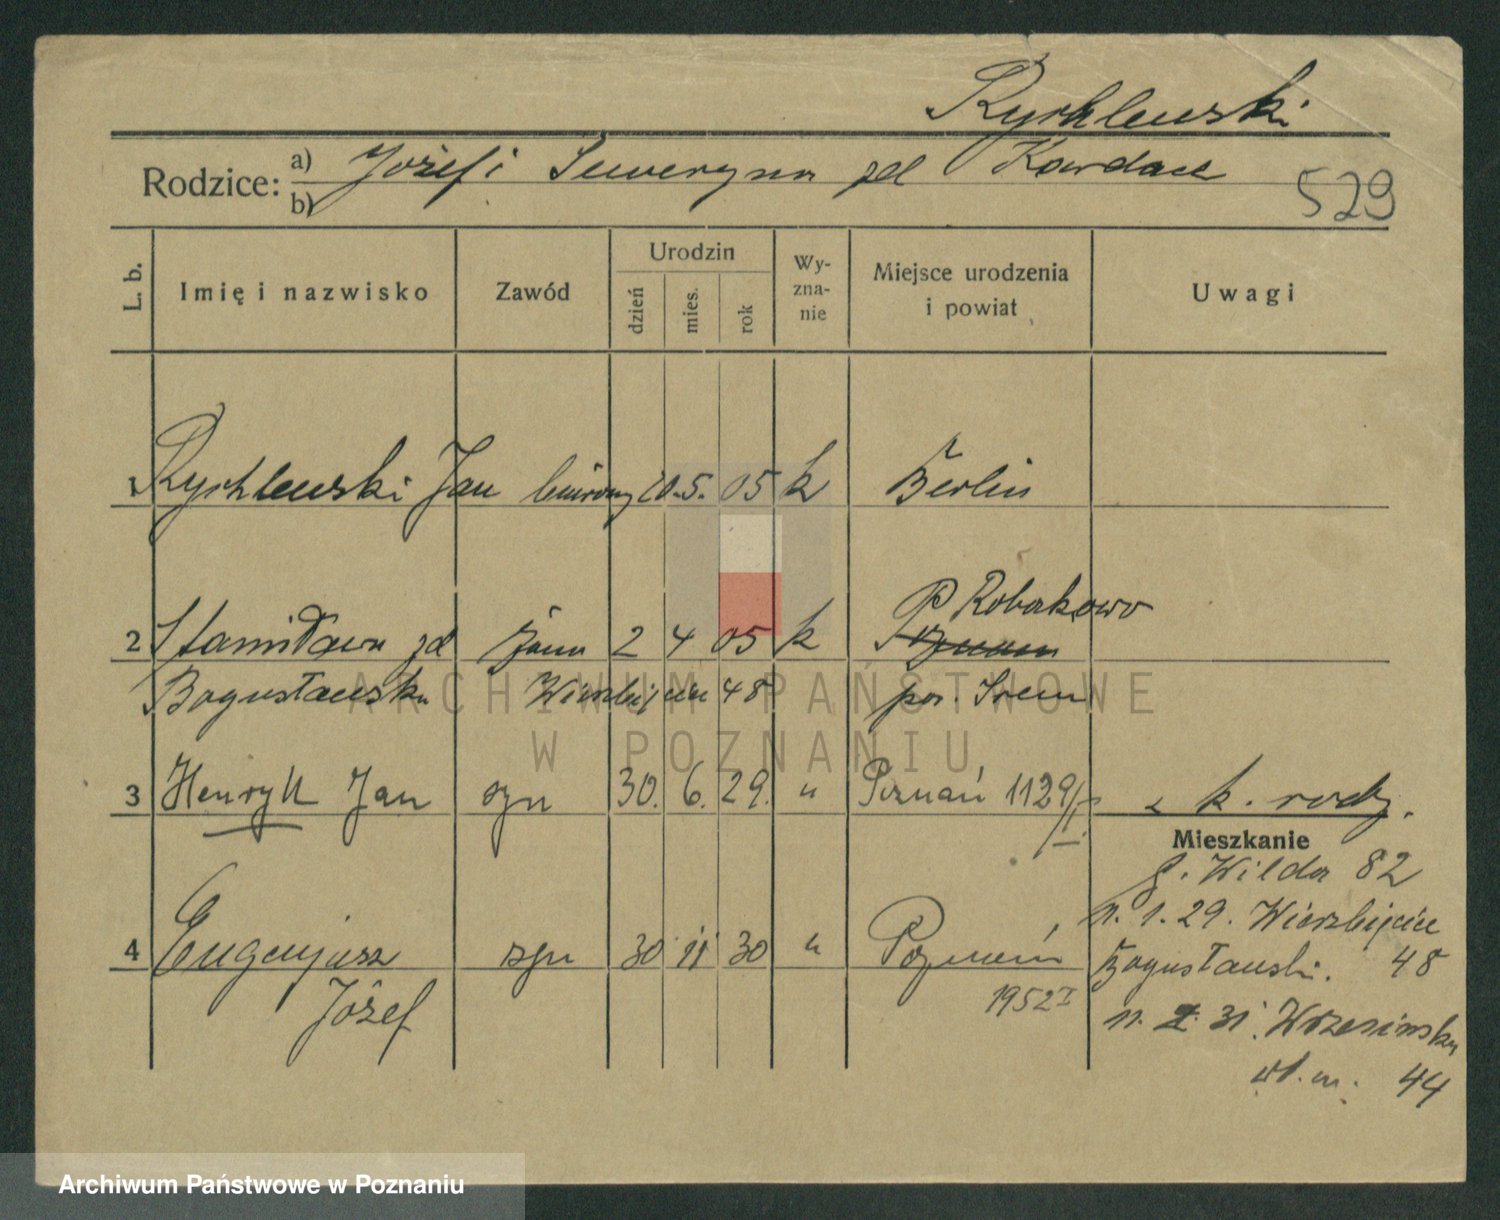 Rychlewski
Rodzice: a) Józef i Seweryna zd Kardach
b)
529
L. b.
Imię i nazwisko
Zawód
Urodzin
dzień
mies.
rok
Wy-
zna-
nie
Miejsce urodzenia
i powiat
Uwagi
1 Rychlewski Jan biurowy 20. 5. 05 k Berlin
Robakowo
2 Stanisława zd żona 2 4 05 k Poznań
Bogusławska Wierzbięcice 48 pow. Śrem
3 Henryk Jan syn 30. 6. 29. " Poznań 1129/I k. rodz.
Mieszkanie
g. Wilda 82
11. 1. 29. Wierzbięcice
4 Eugenjusz syn 30 11 30 " Poznań Bogusławski. 48
Józef 1952 I
31. Wrzesińska
wł. m. 44
ARCHIWUM PAŃSTWOWE
W POZNANIU
Archiwum Państwowe w Poznaniu